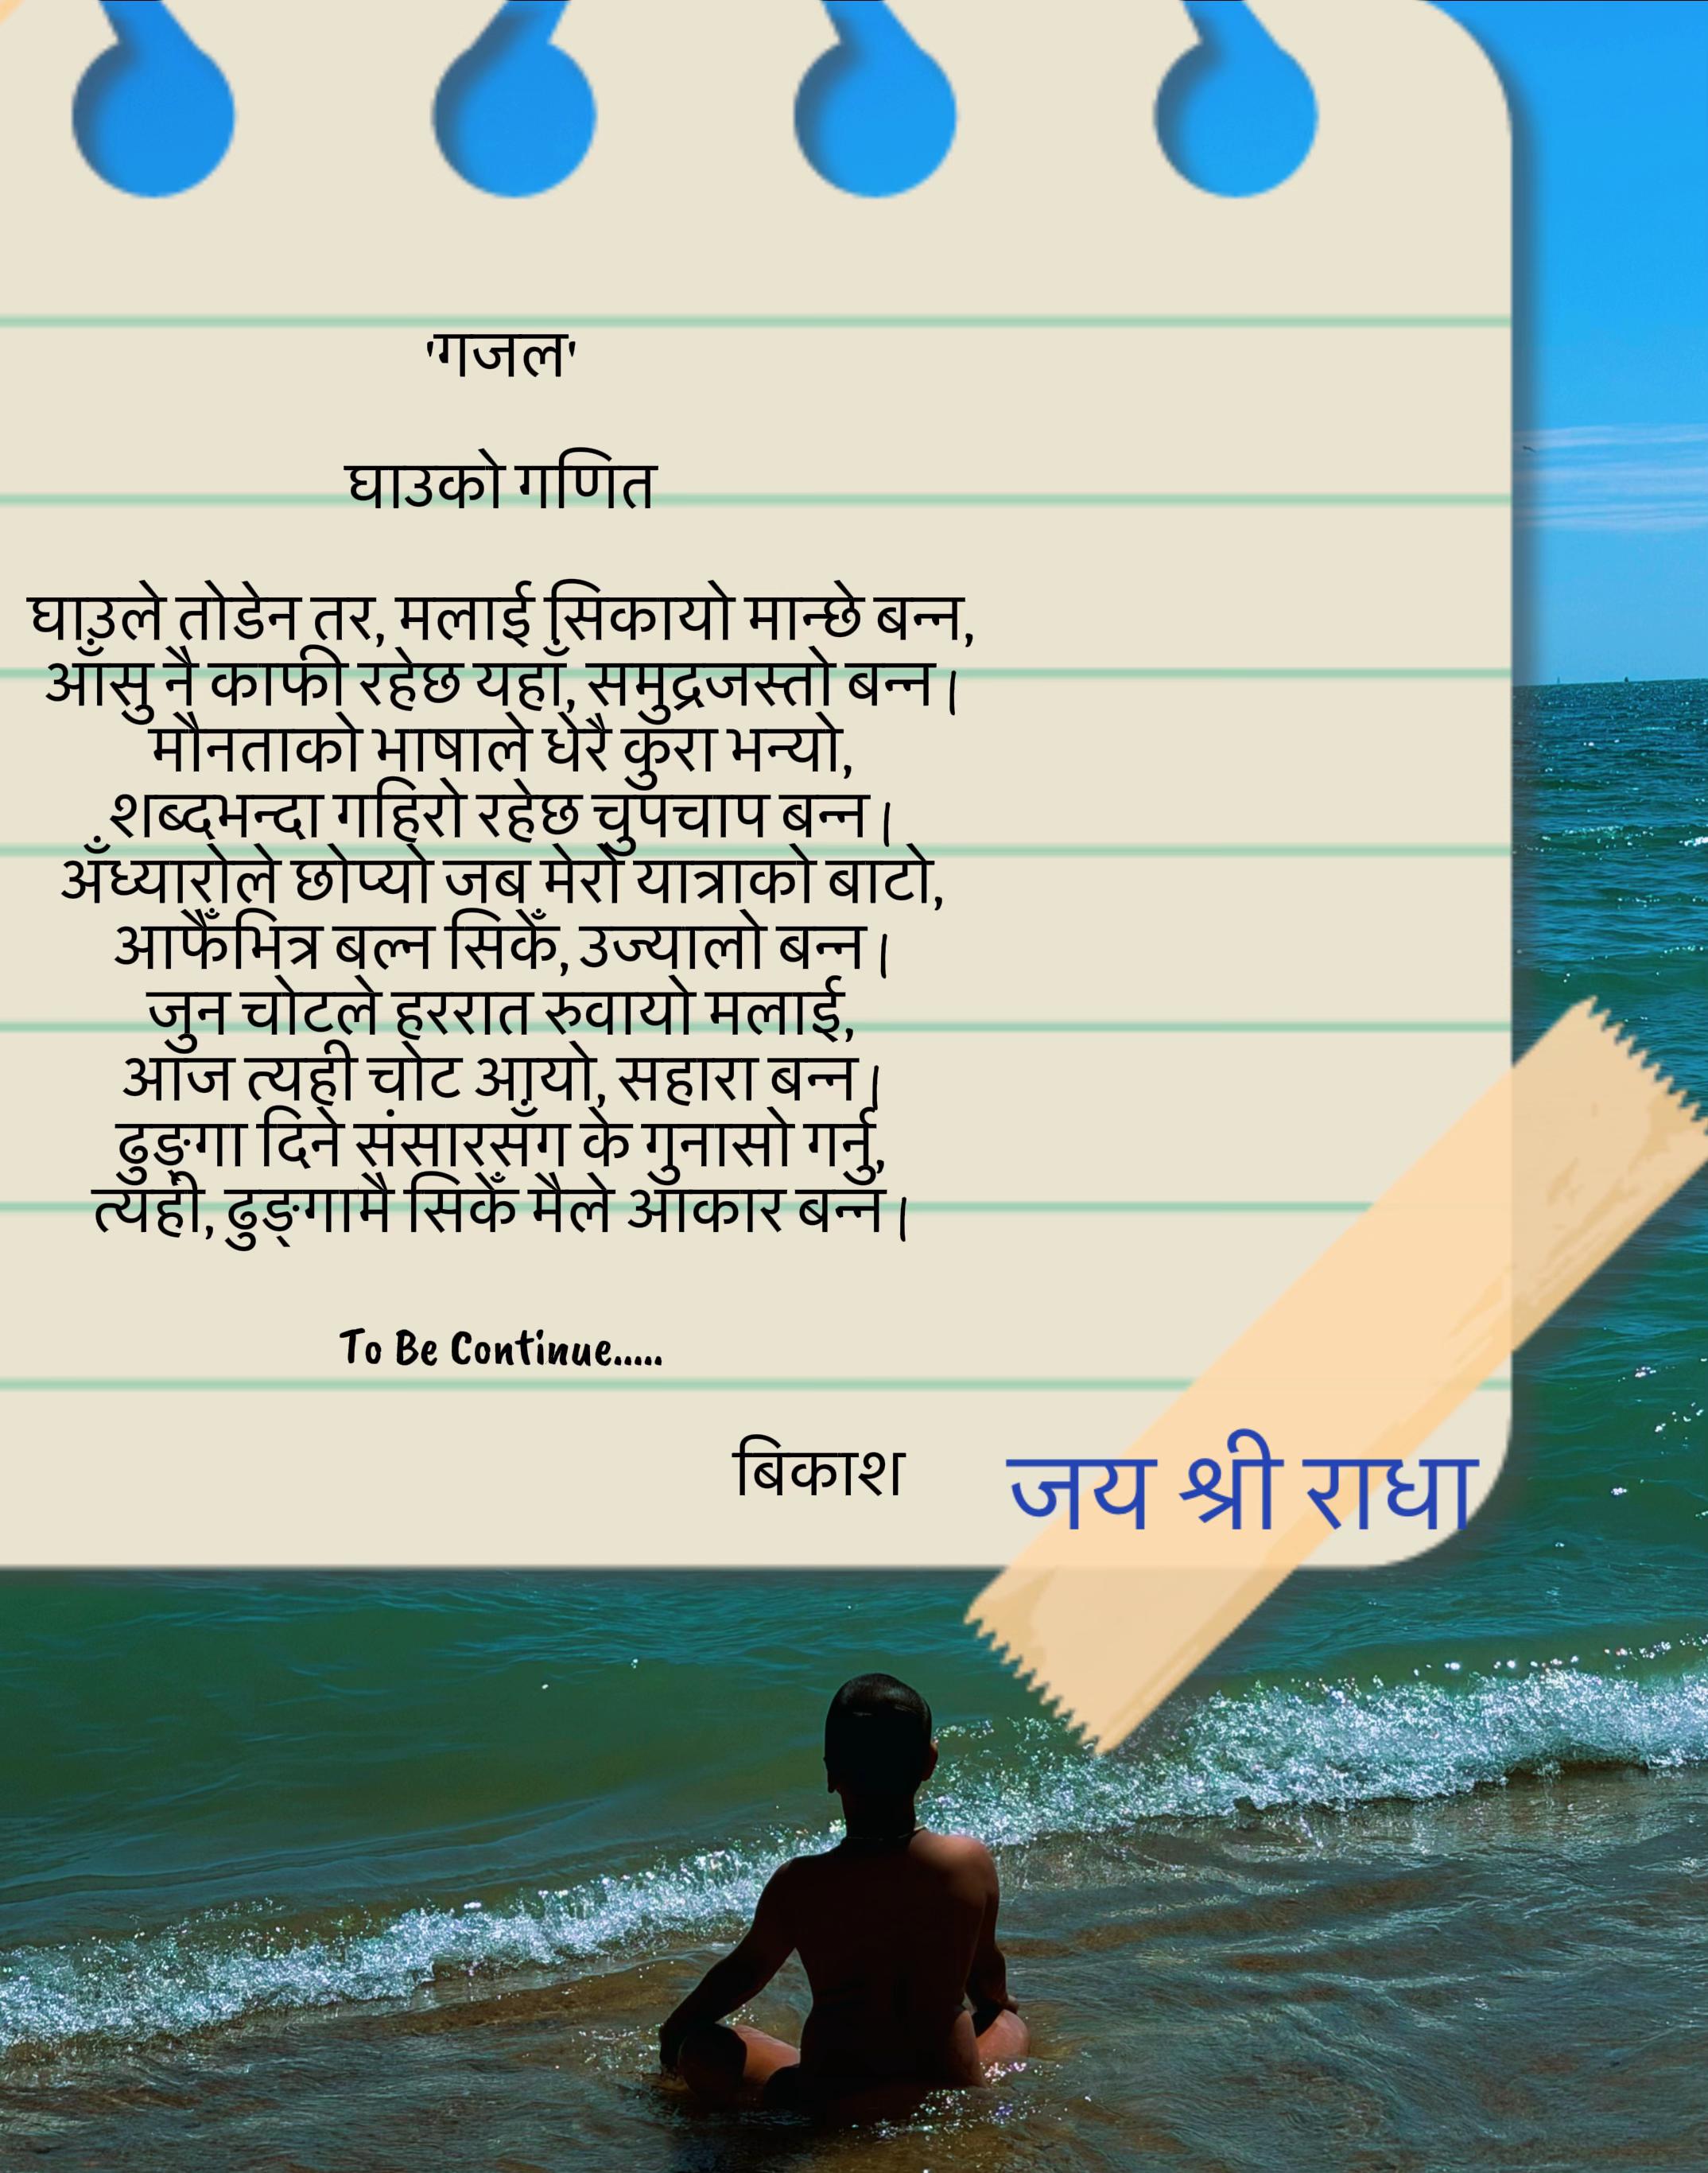 'गजल'
घाउको गणित
घाउले तोडेन तर, मलाई सिकायो मान्छे बन्न,
आँसु नै काफी रहेछ यहाँ, समुद्रजस्तो बन्न।
मौनताको भाषाले धेरै कुरा भन्यो,
शब्दभन्दा गहिरो रहेछ चुपचाप बन्न।
अँध्यारोले छोप्यो जब मेरो यात्राको बाटो,
आफैँभित्र बल्न सिकेँ, उज्यालो बन्न।
जुन चोटले हररात रुवायो मलाई,
आज त्यही चोट आयो, सहारा बन्न।
ढुङ्गा दिने संसारसँग के गुनासो गर्नु,
त्यही, ढुङ्गामै सिकेँ मैले आकार बन्न।
To Be Continue.....
बिकाश
जय श्री राधा